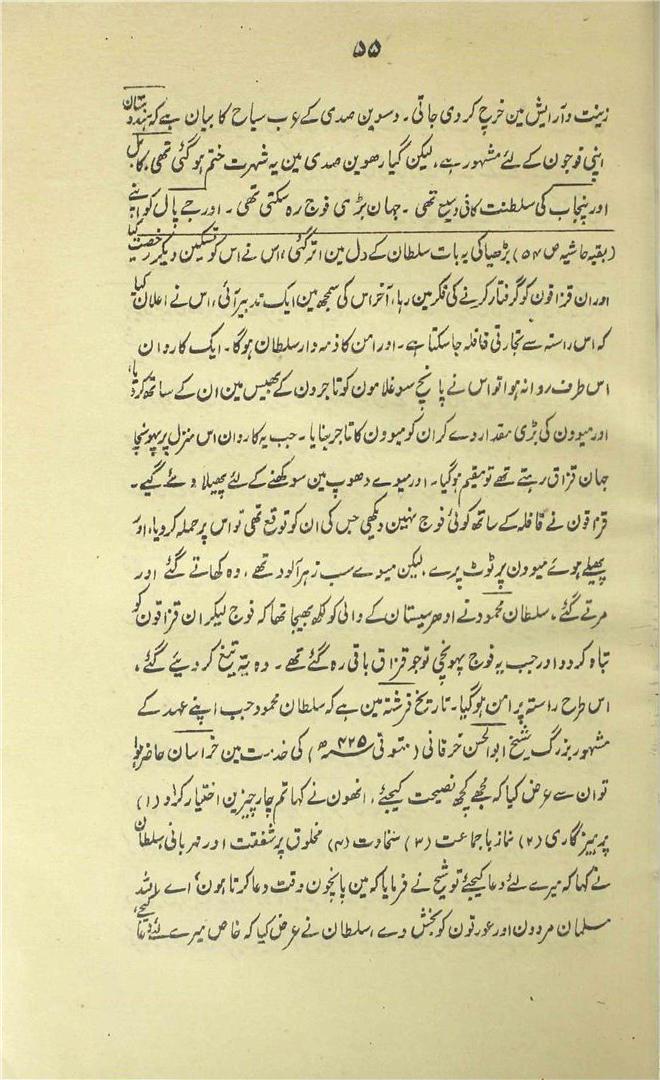 ۵۵
زینت و آرایش مین خرچ کردی جاتی۔ دسوین صدی کے عرب سیاح کا بیان ہے کہ ہندوستان
اپنی فوجون کے لئے مشہور ہے، لیکن گیارھوین صدی مین یہ شہرت ختم ہو گئی تھی، کابل
اور پنجاب کی سلطنت کافی وسیع تھی۔ جہان بڑی فوج رہ سکتی تھی۔ اور جے پال کو اپنے
(بقیہ حاشیہ ص ۵۴) بڑھیا کی یہ بات سلطان کے دل مین اتر گئی، اس نے اس کو تسکین دیکر رخصت کیا
اور ان قزاقون کو گرفتار کرنے کی فکر مین رہا، آخر اس کی سمجھ مین ایک تدبیر آئی، اس نے اعلان کیا
کہ اس راستہ سے تجارتی قافلہ جا سکتا ہے۔ اور امن کا ذمہ دار سلطان ہوگا۔ ایک کاروان
اس طرف روانہ ہوا تو اس نے پانچ سو غلامون کو تاجرون کے بھیس مین ان کے ساتھ کر دیا،
اور میوون کی بڑی مقدار دے کر ان کو میوون کا تاجر بنایا۔ جب یہ کاروان اس منزل پر پہونچا
جہان قزاق رہتے تھے تو مقیم ہو گیا۔ اور میوے دھوپ مین سوکھنے کے لئے پھیلا دئے گیے۔
قزاقون نے قافلہ کے ساتھ کوئی فوج نہین دیکھی جس کی ان کو توقع تھی تو اس پر حملہ کر دیا، اور
پھیلے ہوئے میوون پر ٹوٹ پرے، لیکن میوے سب زہر آلود تھے، وہ کھاتے گئے اور
مرتے گئے، سلطان محمود نے ادھر سیستان کے والی کو لکھ بھیجا تھا کہ فوج لیکر ان قزاقون کو
تباہ کر دو اور جب یہ فوج پہونچی تو جو قزاق باقی رہ گئے تھے۔ وہ تہ تیغ کر دیئے گئے،
اس طرح راستہ پر امن ہو گیا۔ تاریخ فرشتہ مین ہے کہ سلطان محمود جب اپنے عہد کے
مشہور بزرگ شیخ ابو الحسن خرقانی (متوفی ۴۲۵ھ) کی خدمت مین خراسان حاضر ہوا
تو ان سے عرض کیا کہ مجھے کچھ نصیحت کیجئے، انھون نے کہا تم چار چیزین اختیار کرو (۱)
پرہیزگاری (۲) نماز با جماعت (۳) سخاوت (۴) مخلوق پر شفقت اور مہربانی، سلطان
نے کہا کہ میرے لئے دعا کیجئے تو شیخ نے فرمایا کہ مین پانچون وقت دعا کرتا ہون، اے اللہ
مسلمان مردون اور عورتون کو بخش دے، سلطان نے عرض کیا کہ خاص میرے لئے دعا کیجئے،